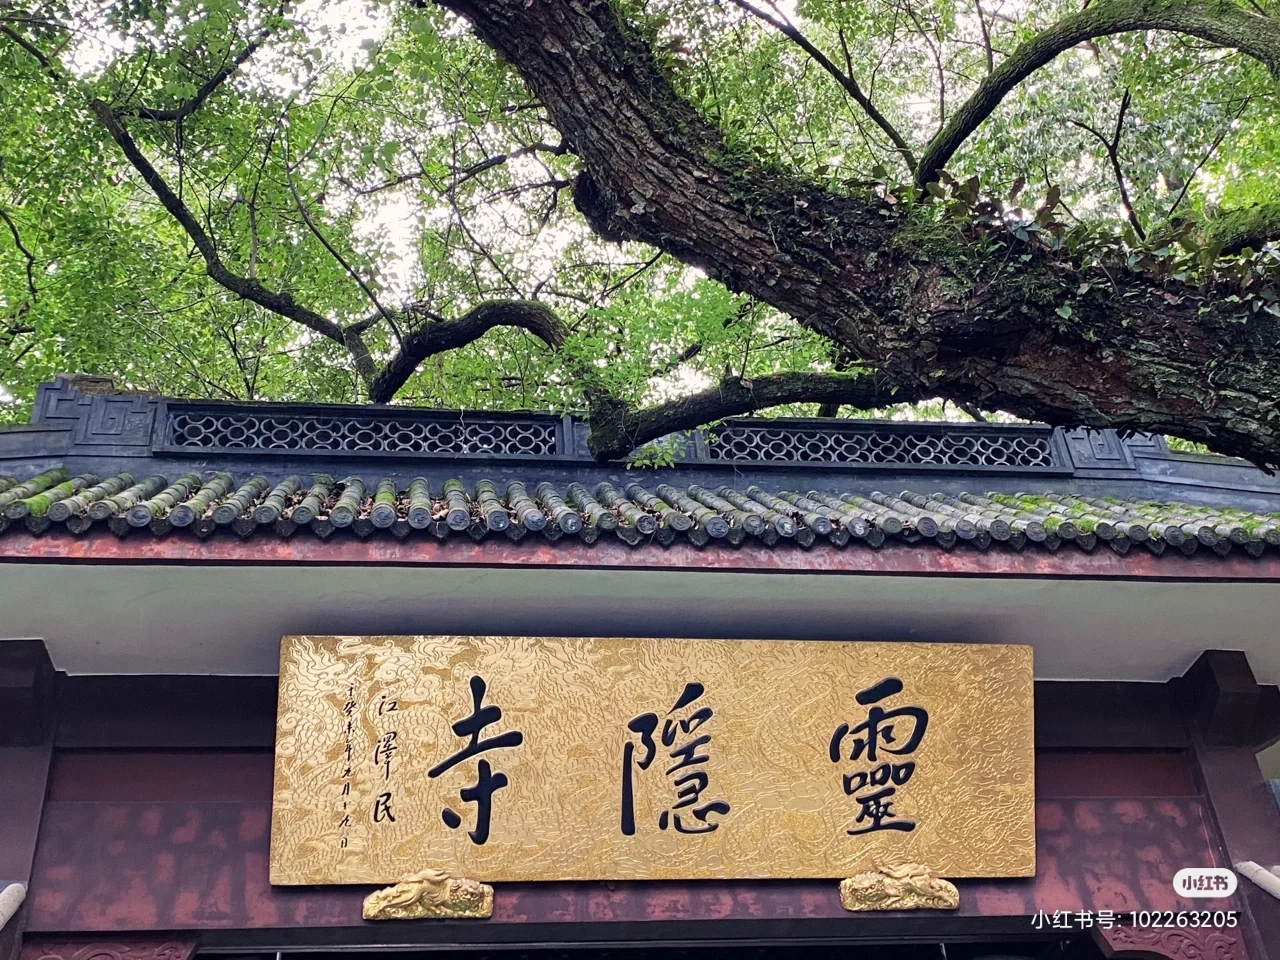 靈隱寺
江澤民
癸未年九月十九日
小红书
小红书号: 102263205